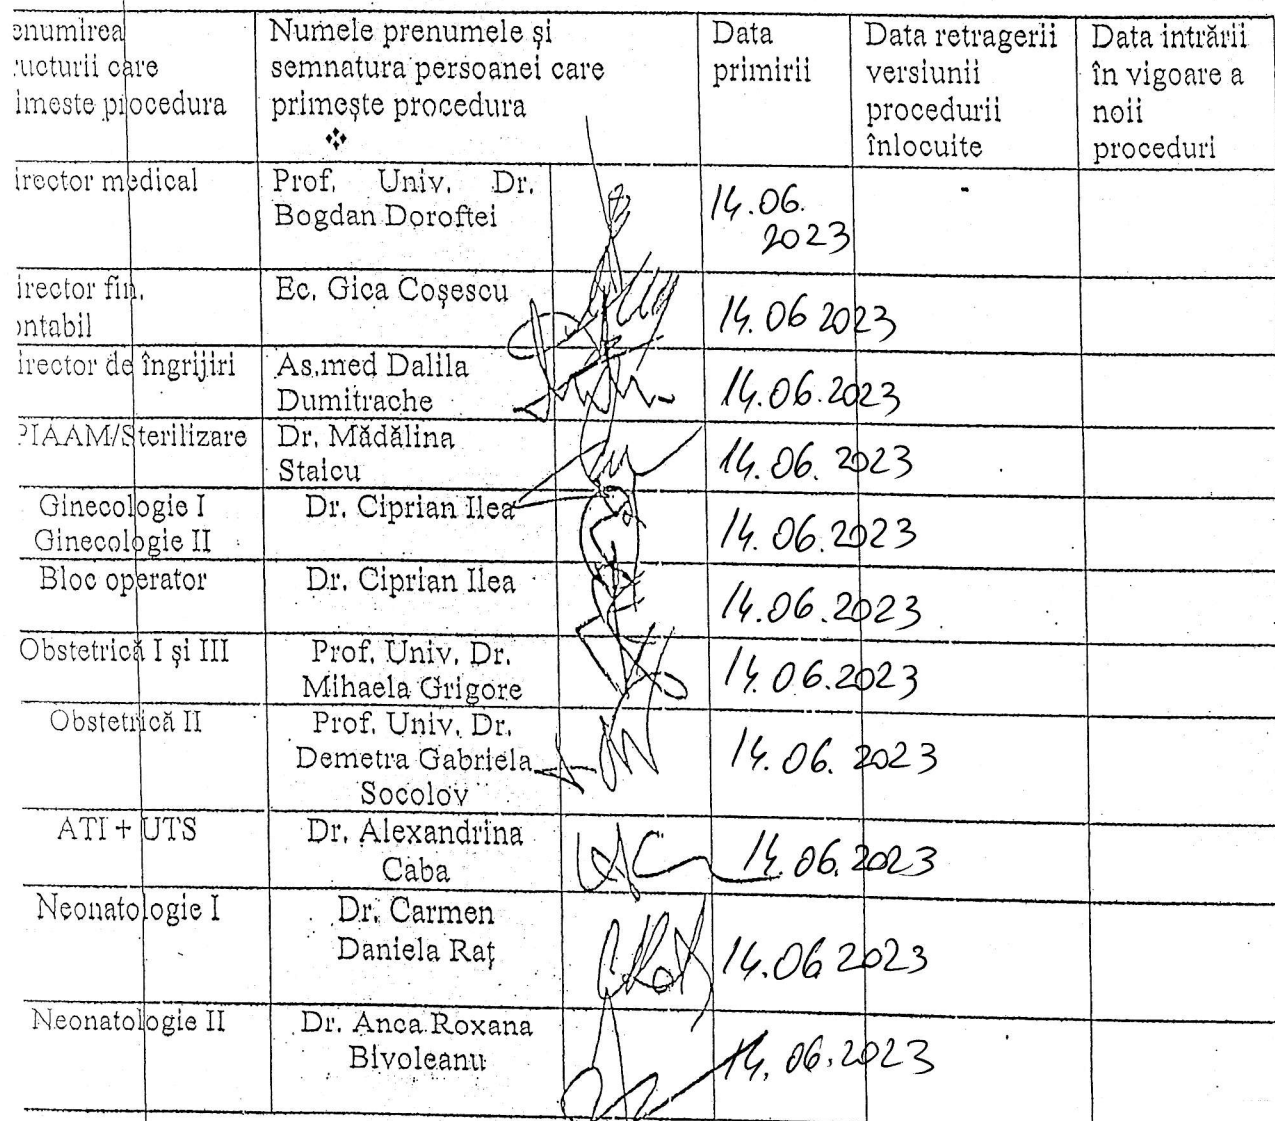 enumirea
ructurii care
imeste procedura
Numele prenumele și
semnatura persoanei care
primește procedura
Data
primirii
Data retragerii
versiunii
procedurii
înlocuite
Data intrării
în vigoare a
noii
proceduri
irector medical
Prof. Univ. Dr.
Bogdan Doroftei
14.06.
2023
-
irector fin.
ontabil
Ec. Gica Coșescu
14.06 2023
irector de îngrijiri
As.med Dalila
Dumitrache
14.06.2023
PIAAM/Sterilizare
Dr. Mădălina
Staicu
14.06.2023
Ginecologie I
Ginecologie II
Dr. Ciprian Ilea
14.06.2023
Bloc operator
Dr. Ciprian Ilea
14.06.2023
Obstetrică I și III
Prof. Univ. Dr.
Mihaela Grigore
14.06.2023
Obstetrică II
Prof. Univ. Dr.
Demetra Gabriela
Socolov
14.06.2023
ATI + UTS
Dr. Alexandrina
Caba
14.06.2023
Neonatologie I
Dr. Carmen
Daniela Raț
14.06 2023
Neonatologie II
Dr. Anca Roxana
Bivoleanu
14.06.2023